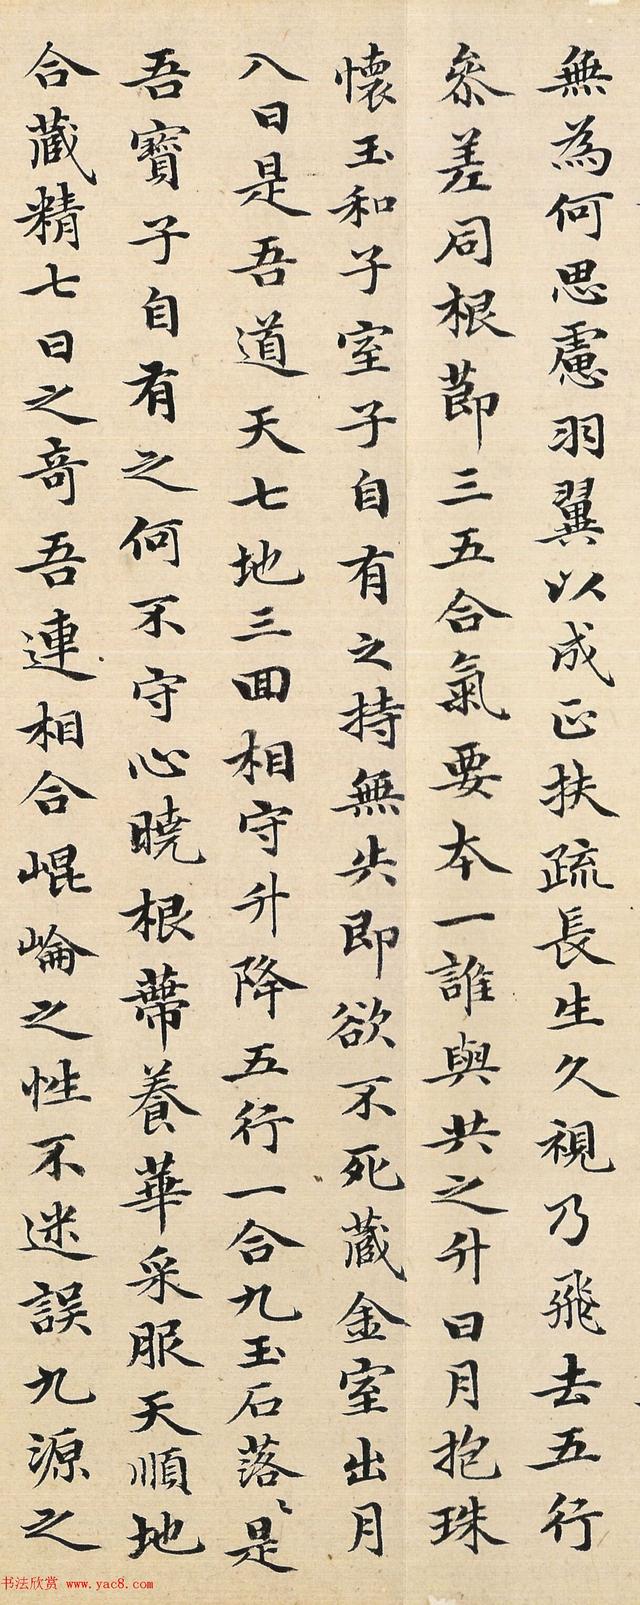 無為何思慮羽翼以成正扶疏長生久視乃飛去五行
參差同根節三五合氣要本一誰與共之升日月抱珠
懷玉和子室子自有之持無失即欲不死藏金室出月
入日是吾道天七地三回相守升降五行一合九玉石落〻是
吾寶子自有之何不守心曉根蔕養華采服天順地
合藏精七日之奇吾連相合崐崘之性不迷誤九源之
书法欣赏 www.yac8.com